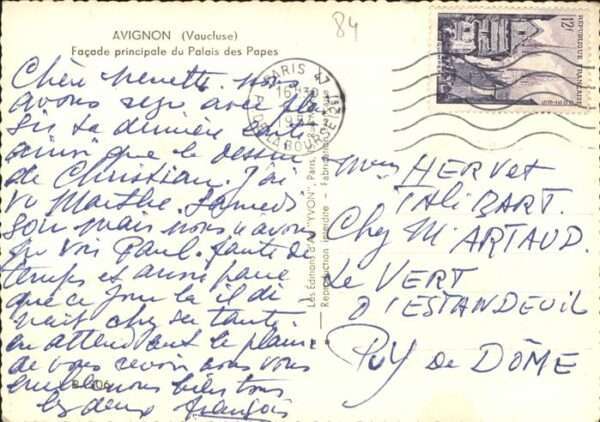 AVIGNON (Vaucluse)
Façade principale du Palais des Papes
84
PARIS 47
16H30
1955
R. DE LA BOURSE (2e)
12F
REPUBLIQUE FRANÇAISE
Chère nous
avons reçu avec plai
sir ta dernière carte
ainsi que le dessin
de Christian. J'ai
vu Marthe. Samedi
soir mais nous n'avons
pu voir Paul. faute de
temps et aussi parce
que ce jour la il di
nait chez sa tante
en attendant le plaisir
de vous revoir nous vous
embrassons bien tous
les deux François
Les Editions d'Art "YVON", Paris,
Reproduction interdite - Fabrication
HERVET
CALIBART.
Chez Mr ARTAUD.
Le VERT
D'ESTANDEUIL
PUY de DÔME